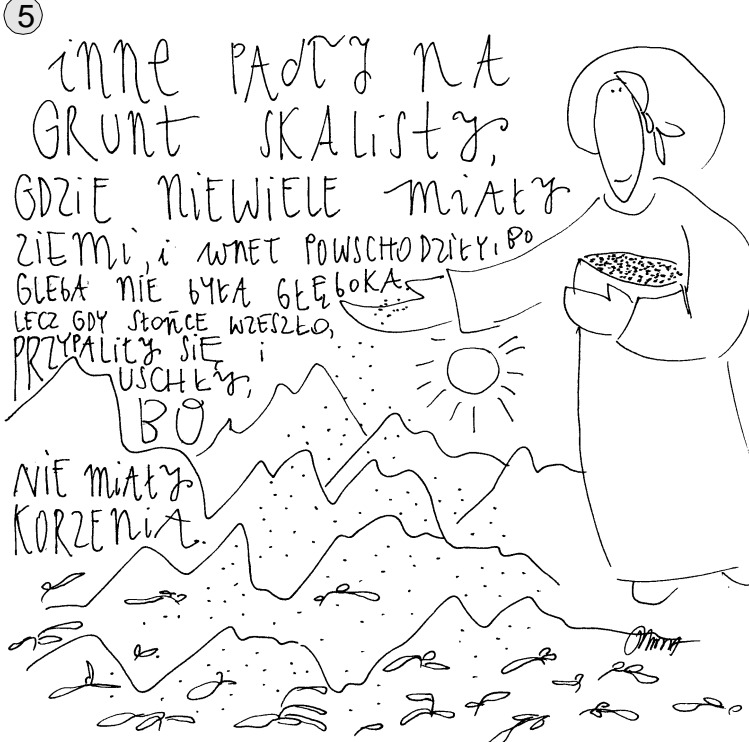 5
inne PAdŁY NA
GRUNT SKALiSTY,
GDZiE NiEWiELE MiAŁY
ZiEMi, i WNET POWSCHODZiŁY, BO
GLEBA NiE BYŁA GŁĘBOKA,
LECZ GDY SŁOŃCE WZESZŁO,
PRZYPALiŁY SiĘ i
USCHŁY,
BO
NiE MiAŁY
KORZENiA.